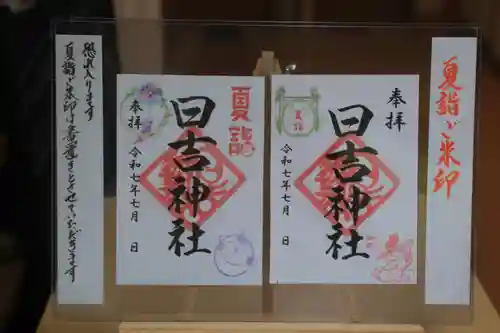 夏詣ご朱印
奉拝
日吉神社
令和七年七月 日
夏詣
夏詣
奉拝
日吉神社
令和七年七月 日
恐れ入ります
夏詣ご朱印は書置きとさせていただきます